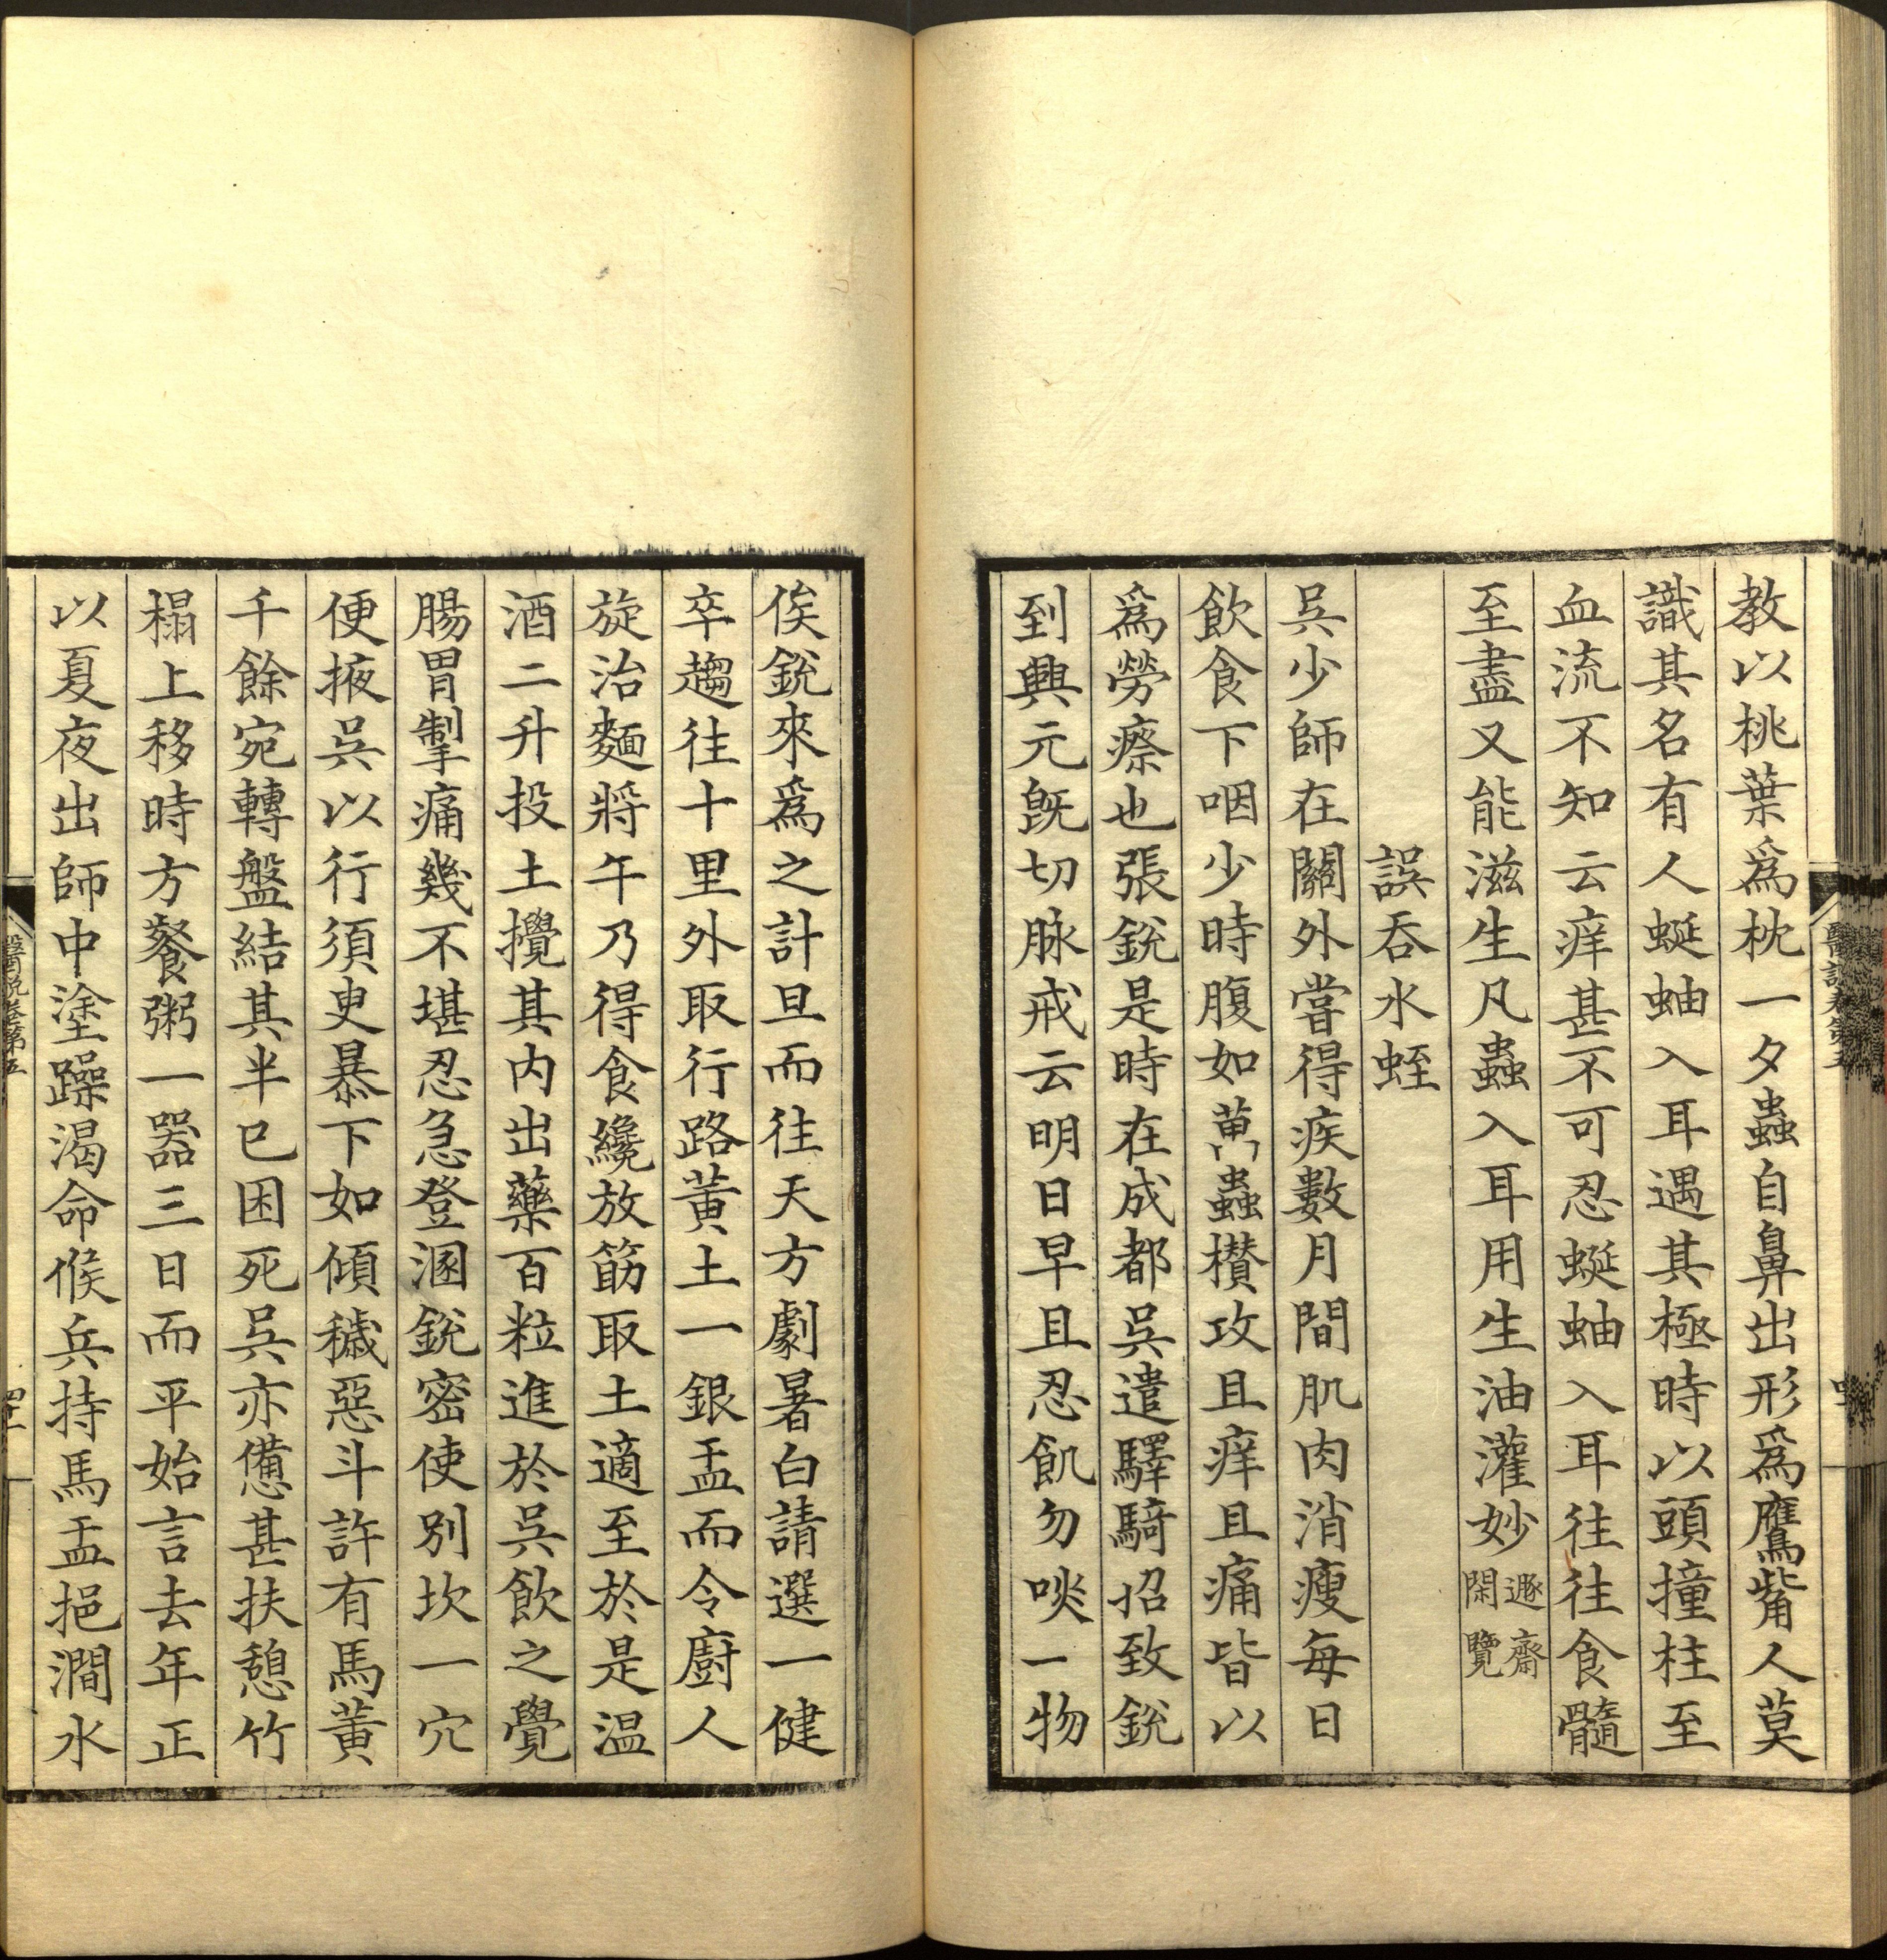 教以桃葉爲枕一夕蟲自鼻出形爲鷹觜人莫
識其名有人蜒蚰入耳遇其極時以頭撞柱至
血流不知云痒甚不可忍蜒蚰入耳往往食髓
至盡又能滋生凡蟲入耳用生油灌妙遯齋閑覽
誤吞水蛭
吳少師在關外嘗得疾數月間肌肉消瘦每日
飲食下咽少時腹如萬蟲攅攻且痒且痛皆以
爲勞瘵也張銳是時在成都吳遣驛騎招致銳
到興元旣切脉戒云明日早且忍飢勿啖一物
俟銳來爲之計旦而往天方劇暑白請選一健
卒趨往十里外取行路黃土一銀盂而令廚人
旋治麵將午乃得食纔放筯取土適至於是温
酒二升投土攪其内出藥百粒進於吳飲之覺
腸胃掣痛幾不堪忍急登溷銳密使別坎一穴
便掖吳以行須臾暴下如傾穢惡斗許有馬黃
千餘宛轉盤結其半已困死吳亦憊甚扶憩竹
榻上移時方餐粥一器三日而平始言去年正
以夏夜出師中塗躁渴命候兵持馬盂挹澗水
醫説卷第五